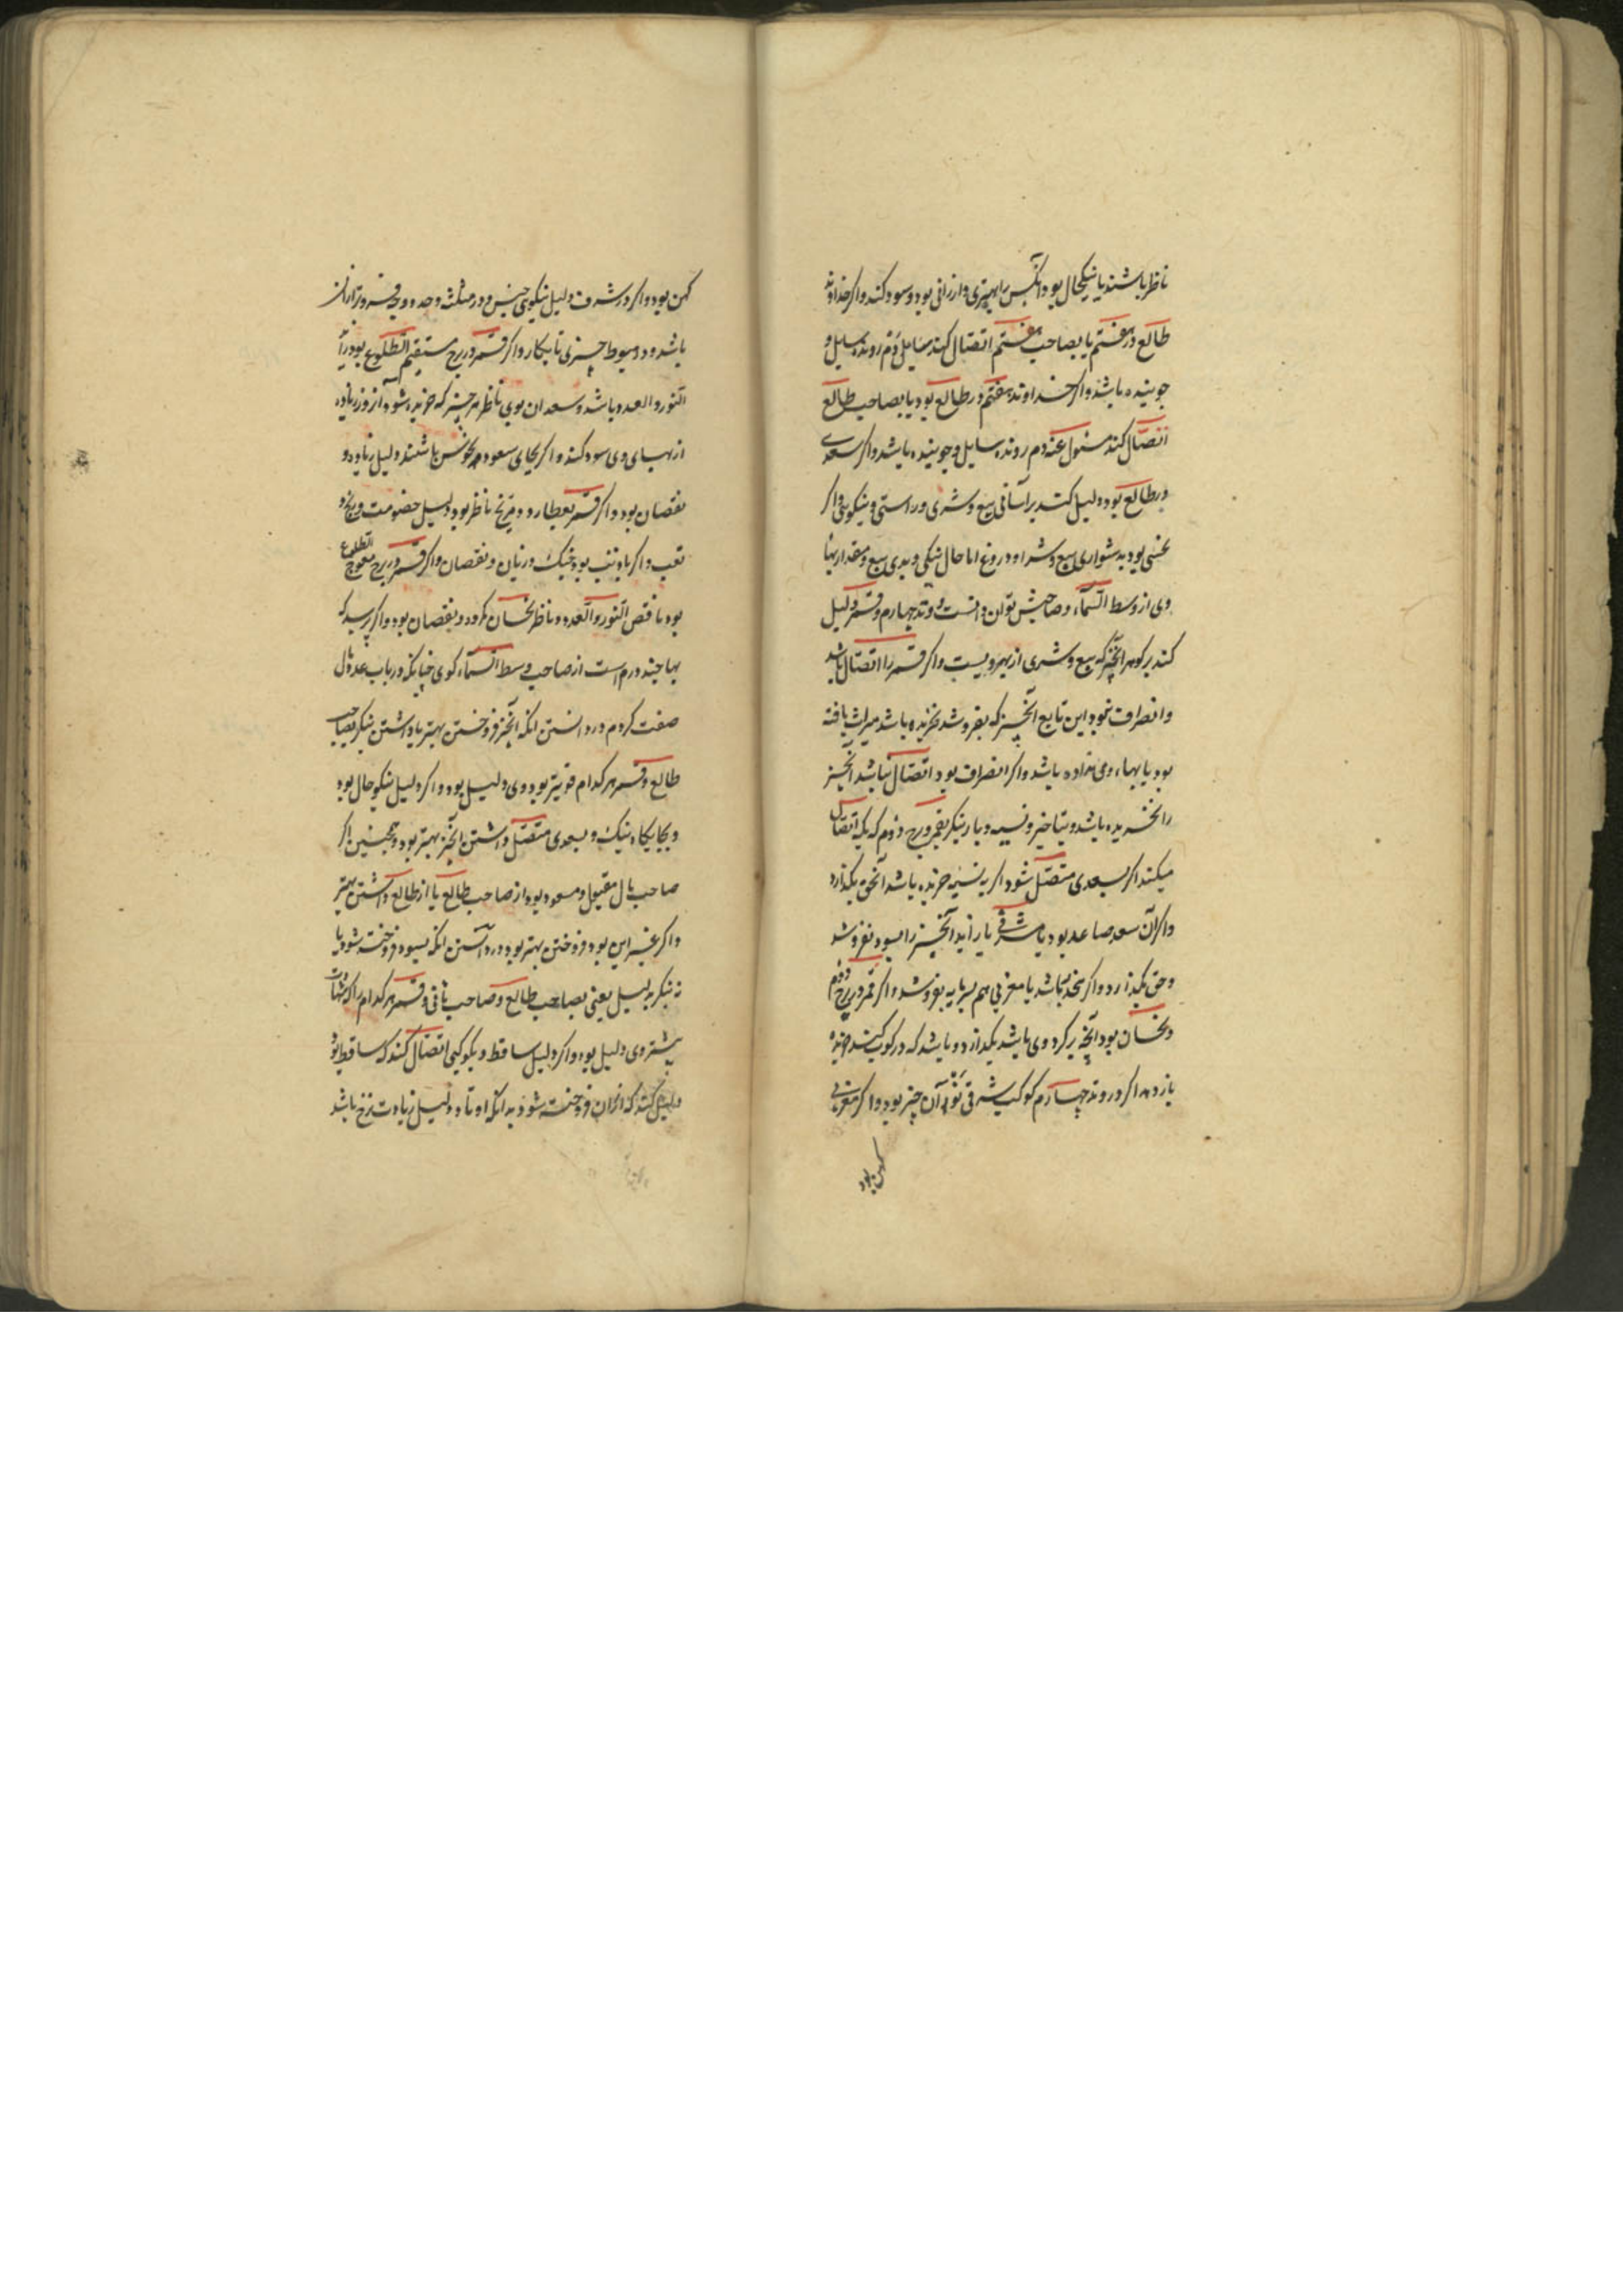 ناظر باشند یا نیکحال بود آنکس را بهتری و ارزانی بود و سود کند و اگر خداوند
طالع در هفتم یا بصاحب هفتم اتصال کند سایل دوم رونده سایل و
جوینده باشد و اگر خداوند هفتم در طالع بود یا بصاحب طالع
اتصال کند مسئول عنه دوم رونده سایل و جوینده باشد و اگر سعدی
در طالع بود دلیل کند بر آسانی بیع و شری و راستی و نیکویی و اگر
نحسی بود بدشواری بیع و شرا و دروغ اما حال نیکی و بدی بیع و مقدار بها
وی از وسط السماء و صاحبش توان دانست و وتد چهارم و قمر دلیل
کند بر گوهر آنچیز که بیع و شری از بهر ویست و اگر قمر را اتصال باشد
و انصراف نبود این تابع آنچیز که بفروشد نخریده باشد میراث یافته
بود یا بهاء وی نداده باشد و اگر انصراف بود اتصال نباشد آنچیز
را نخریده باشد و بتاخیر و نسیه و باز بنگر بقمر و برج دوم که بکه اتصال
میکند اگر بسعدی متصل شود اگر به نسیه خریده باشد آنحق بگذارد
و اگر آن سعد صاعد بود یا مشرقی یا زاید آنچیز را بسود بفروشد
و حق بگذارد و اگر نحد نباشد یا مغربی هم بسرمایه بفروشد و اگر قمر در برج دوم
و نحسان بود آنچه بر گرد وی باشد بگدازد و باشد که در کوکب
باز دهد اگر در وتد چهارم کوکب شرقی بود آن چیز نو بود و اگر مغربی
کهن بود
کهن بود و اگر در شرف دلیل نیکویی جنس و در مثلثه و حد و وجه فروتر از آن
باشد و در هبوط چیزی نابکار و اگر قمر در برج مستقیم الطلوع بود زاید
النور و العدد باشد و سعدان بوی ناظر هر چیز که خریده شود آنروز زیاده
از بهای وی سود کند و اگر بجای سعود نحوس باشند دلیل زیان و
نقصان بود و اگر قمر بعطارد و مریخ ناظر بود دلیل خصومت و رنج و
تعب و اگر با ذنب بود جنگ و زیان و نقصان و اگر قمر در برج معوج الطلوع
بود ناقص النور و العدد و ناظر نحسان و نقصان بود و اگر پرسد که
بها چند درم است از صاحب وسط السماء گوی چنانکه در باب عدد مال
صفت کردم در دانستن آنکه آنچیز فروختن بهتر یا داشتن بنگر بصاحب
طالع و قمر هر کدام قویتر بود وی دلیل بود و اگر دلیل نیکوحال بود
و بجایگاه نیک و بسعدی متصل داشتن آنچیز بهتر بود و همچنین اگر
صاحب مال مقبول و مسعود بود از صاحب طالع یا از طالع داشتن بهتر
و اگر غیر این بود فروختن بهتر بود در دانستن آنکه بسود فروخته شود یا
نه بنگر بدلیل یعنی بصاحب طالع و صاحب ثانی و قمر هر کدام را که شهادت
بیشتر وی دلیل بود و اگر دلیل ساقط و بکوکبی اتصال کند که ساقط بود
دلیل کند که ارزان فروخته شود بدانکه اوتاد دلیل زیادت نرخ باشد